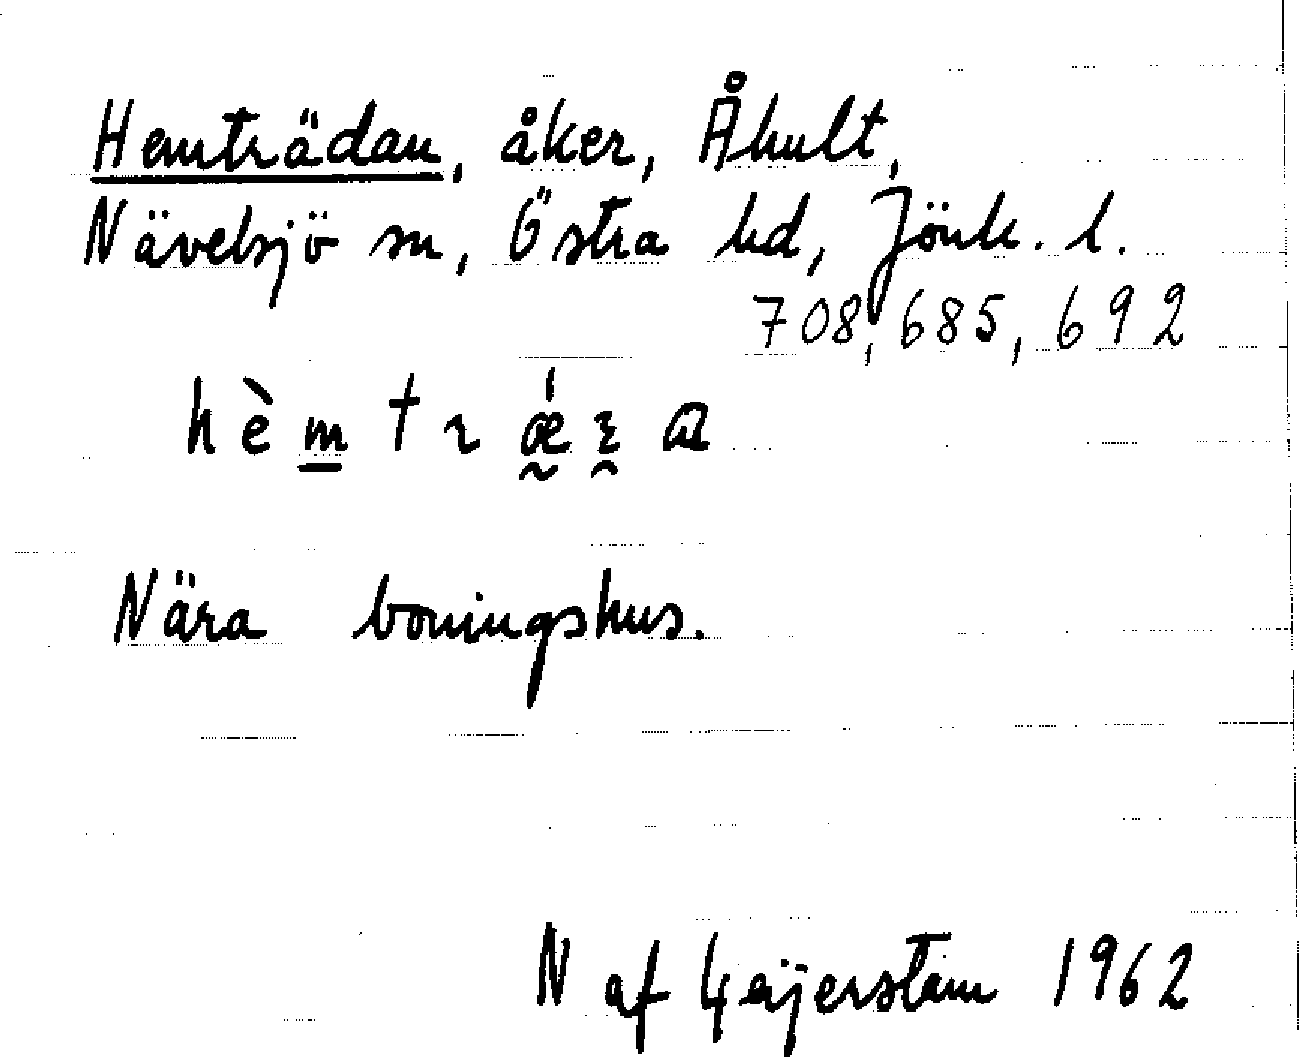 Hemträdan, åker, Åhult,
Nävelsjö sn, Östra hd, Jönk. l.
708, 685, 692
hèm t r ǽ ꝛ a
Nära boningshus.
N af Geijerstam 1962